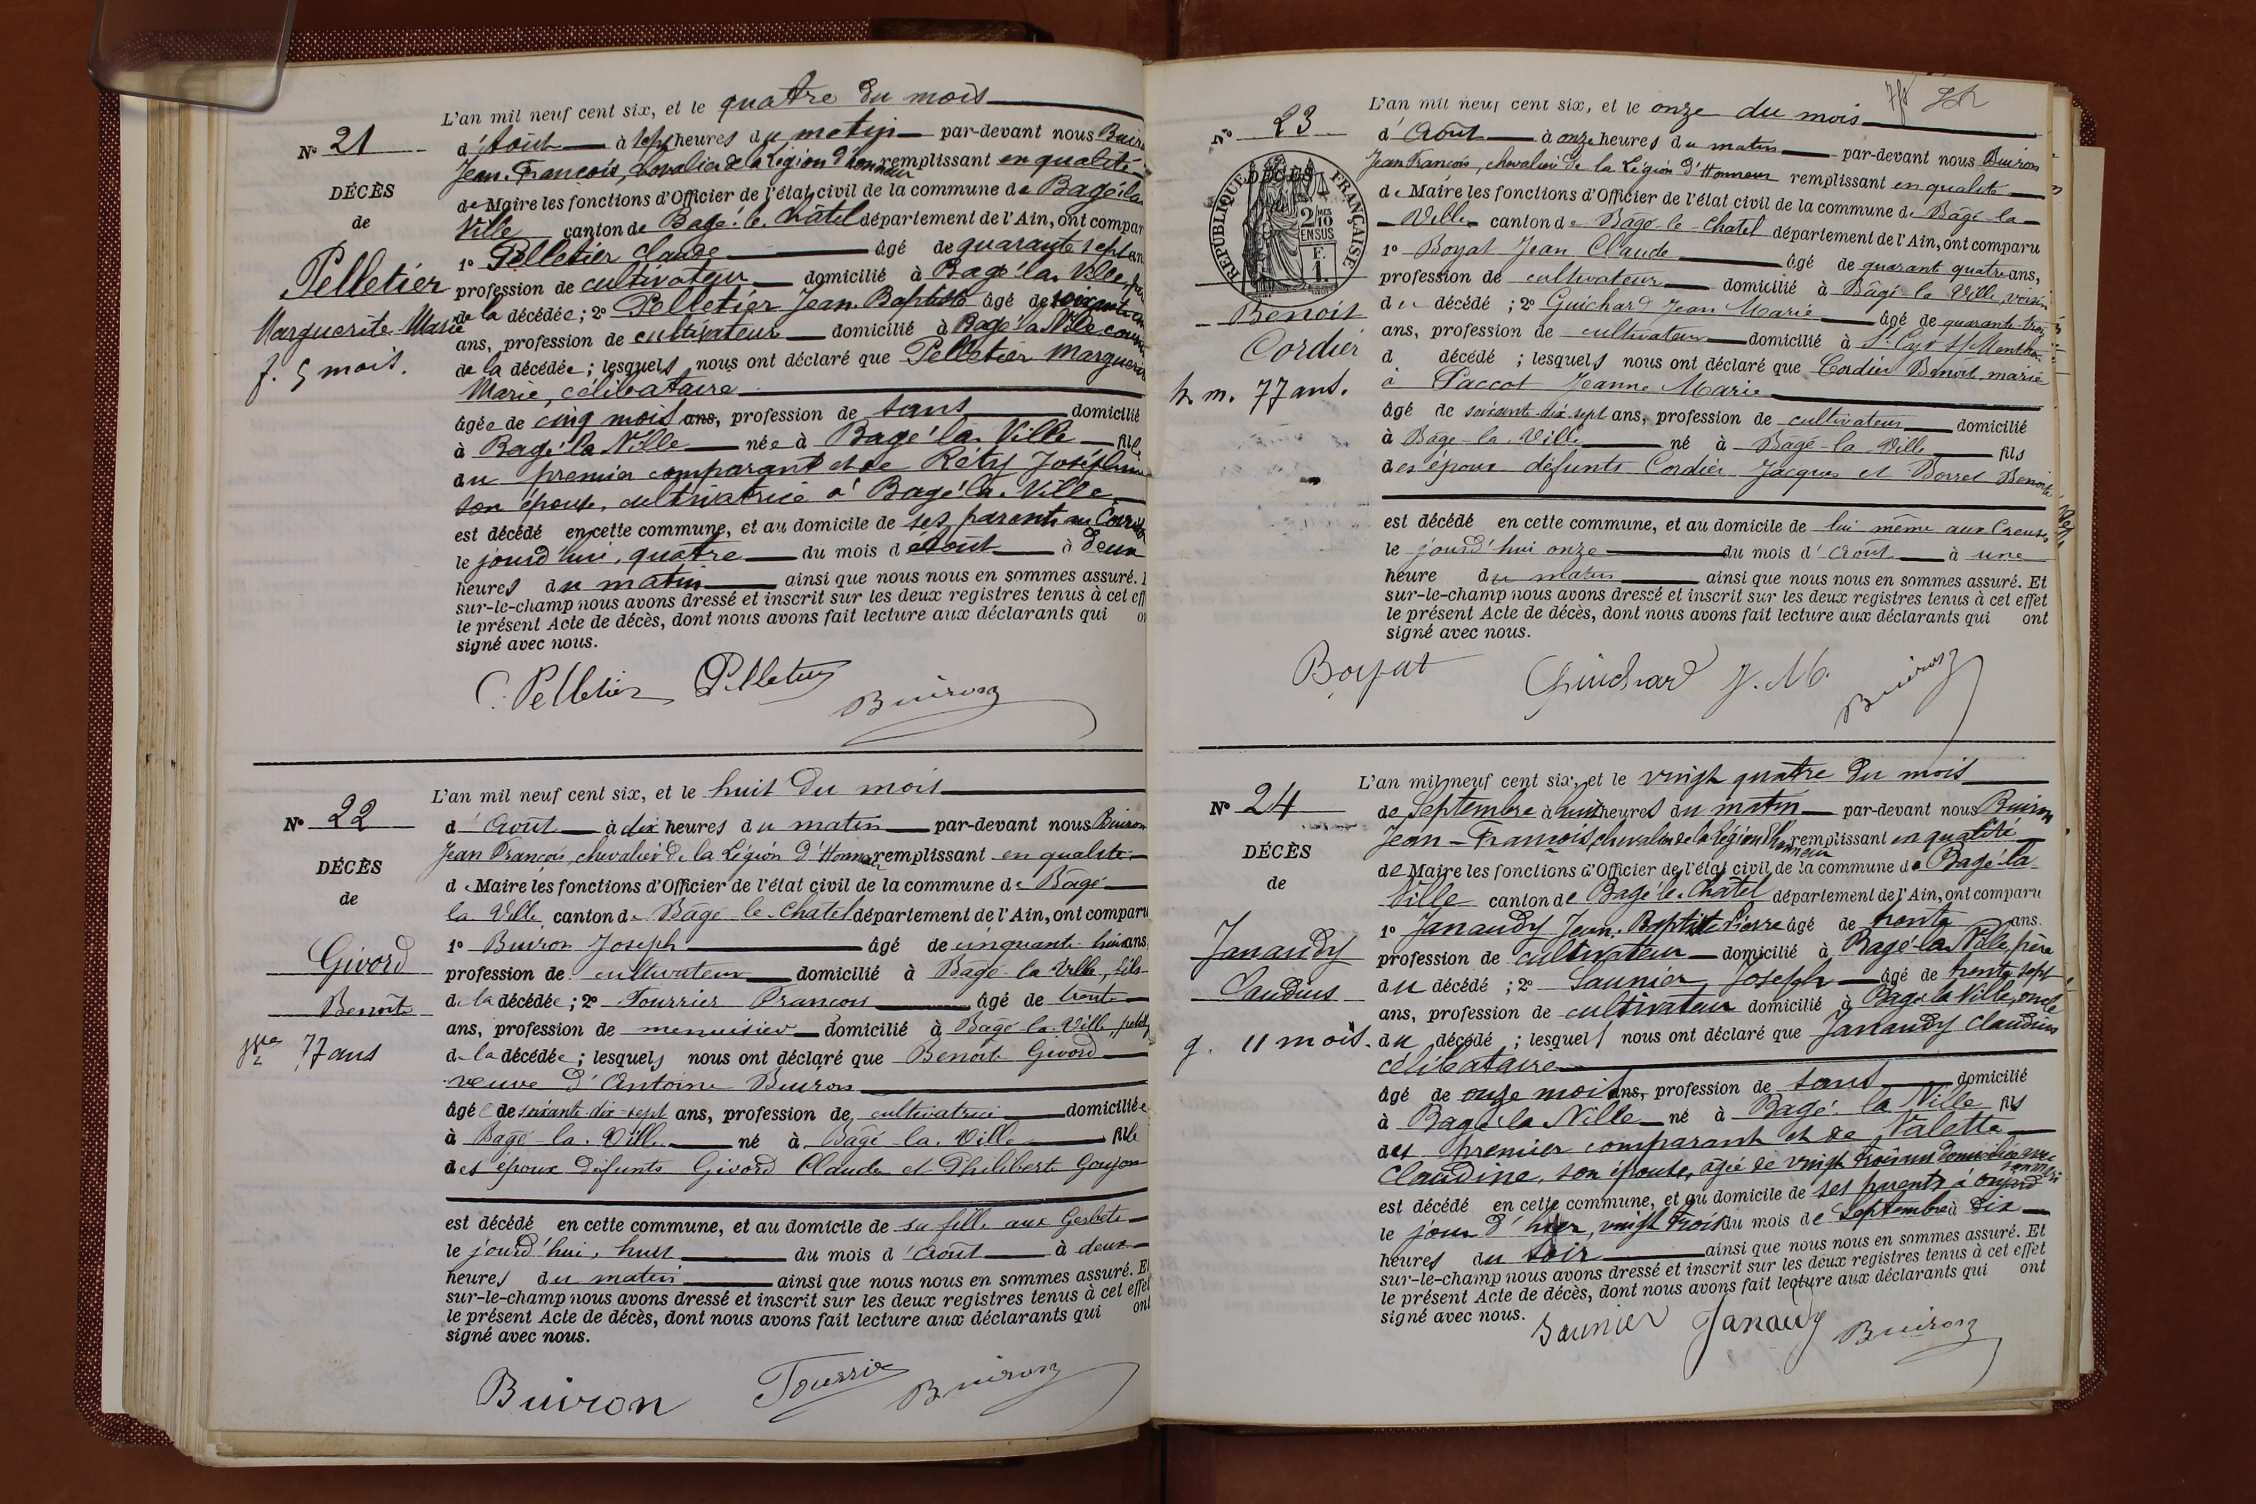 L'an mil neuf cent six, et le quatre du mois
N° 21
d'Août à sept heures du matin par-devant nous Buiron
Jean-François, chevalier de la Légion d'honneur remplissant en qualité
DÉCÈS
de Maire les fonctions d'Officier de l'état civil de la commune de Bagé-la
de
Ville canton de Bagé-le-Châtel département de l'Ain, ont compar
1° Pelletier Claude âgé de quarante sept ans
Pelletier
profession de cultivateur domicilié à Bagé-la-Ville,
de la décédée ; 2° Pelletier Jean-Baptiste âgé de
Marguerite Marie
ans, profession de cultivateur domicilié à Bagé-la-Ville
f. 5 mois.
de la décédée ; lesquels nous ont déclaré que Pelletier Marguerite
Marie, célibataire
âgée de cinq mois ans, profession de sans domicilié
à Bagé-la-Ville née à Bagé-la-Ville fille
du premier comparant et de Réty Joséphine
son épouse, cultivatrice à Bagé-la-Ville
est décédé en cette commune, et au domicile de ses parents au
le jourd'hui, quatre du mois d'août à deux
heures du matin ainsi que nous nous en sommes assuré.
sur-le-champ nous avons dressé et inscrit sur les deux registres tenus à cet eff
le présent Acte de décès, dont nous avons fait lecture aux déclarants qui on
signé avec nous.
C. Pelletier Pelletier Buiron
L'an mil neuf cent six, et le huit du mois
N° 22
d'Août à dix heures du matin par-devant nous Buiron
Jean François, chevalier de la Légion d'Honneur remplissant en qualité
DÉCÈS
de Maire les fonctions d'Officier de l'état civil de la commune de Bâgé
de
la Ville canton de Bâgé-le-Châtel département de l'Ain, ont comparu
1° Buiron Joseph âgé de cinquante-huit ans
Givord
profession de cultivateur domicilié à Bâgé-la-Ville, fils
Benoîte
de la décédée ; 2° Fourrier François âgé de trente
ans, profession de menuisier domicilié à Bâgé-la-Ville
77 ans
de la décédée ; lesquels nous ont déclaré que Benoîte Givord
veuve d'Antoine Buiron
âgée de soixante-dix-sept ans, profession de cultivatrice domiciliée
à Bâgé-la-Ville né à Bâgé-la-Ville fille
des époux défunts Givord Claude et Philiberte Goujon
est décédé en cette commune, et au domicile de sa fille aux Gerbets
le jourd'hui, huit du mois d'Août à deux
heures du matin ainsi que nous nous en sommes assuré. Et
sur-le-champ nous avons dressé et inscrit sur les deux registres tenus à cet effet
le présent Acte de décès, dont nous avons fait lecture aux déclarants qui ont
signé avec nous.
Buiron Fourrier Buiron
L'an mil neuf cent six, et le onze du mois
N° 23
d'Août à onze heures du matin par-devant nous Buiron
Jean François, chevalier de la Légion d'Honneur remplissant en qualité
DÉCÈS
RÉPUBLIQUE FRANÇAISE
2/10 EN SUS
F. 1
de Maire les fonctions d'Officier de l'état civil de la commune de Bâgé-la-
Ville canton de Bâgé-le-Chatel département de l'Ain, ont comparu
1° Boyat Jean Claude âgé de quarante quatre ans,
profession de cultivateur domicilié à Bâgé-la-Ville, voisin
du décédé ; 2° Guichard Jean Marie âgé de quarante-trois
Benoit
ans, profession de cultivateur domicilié à St Cyr s/ Menthon
Cordier
d décédé ; lesquels nous ont déclaré que Cordier Benoit, marié
h. m. 77 ans.
à Paccot Jeanne Marie
âgé de soixante-dix-sept ans, profession de cultivateur domicilié
à Bâgé-la-Ville né à Bâgé-la-Ville fils
des époux défunts Cordier Jacques et Borret Benoîte
est décédé en cette commune, et au domicile de lui même aux Creuses
le jourd'hui onze du mois d'Août à une
heure du matin ainsi que nous nous en sommes assuré. Et
sur-le-champ nous avons dressé et inscrit sur les deux registres tenus à cet effet
le présent Acte de décès, dont nous avons fait lecture aux déclarants qui ont
signé avec nous.
Boyat Guichard J. M. Buiron
L'an mil neuf cent six, et le vingt quatre du mois
N° 24
de Septembre à huit heures du matin par-devant nous Buiron
Jean-François, chevalier de la Légion d'honneur remplissant en qualité
DÉCÈS
de Maire les fonctions d'Officier de l'état civil de la commune de Bagé-la
de
Ville canton de Bagé-le-Châtel département de l'Ain, ont comparu
1° Janaudy Jean-Baptiste Pierre âgé de trente ans.
Janaudy
profession de cultivateur domicilié à Bagé-la-Ville, père
Claudius
du décédé ; 2° Saunier Joseph âgé de trente sept
ans, profession de cultivateur domicilié à Bagé-la-Ville, oncle
g. 11 mois.
du décédé ; lesquels nous ont déclaré que Janaudy Claudius
célibataire
âgé de onze mois ans, profession de sans domicilié
à Bagé-la-Ville né à Bagé-la-Ville fils
des premier comparant et de Valette
Claudine, son épouse, âgée de vingt trois ans domiciliée avec son mari
est décédé en cette commune, et au domicile de ses parents à
le jour d'hier, vingt trois du mois de Septembre à dix
heures du soir ainsi que nous nous en sommes assuré. Et
sur-le-champ nous avons dressé et inscrit sur les deux registres tenus à cet effet
le présent Acte de décès, dont nous avons fait lecture aux déclarants qui ont
signé avec nous.
Saunier Janaudy Buiron